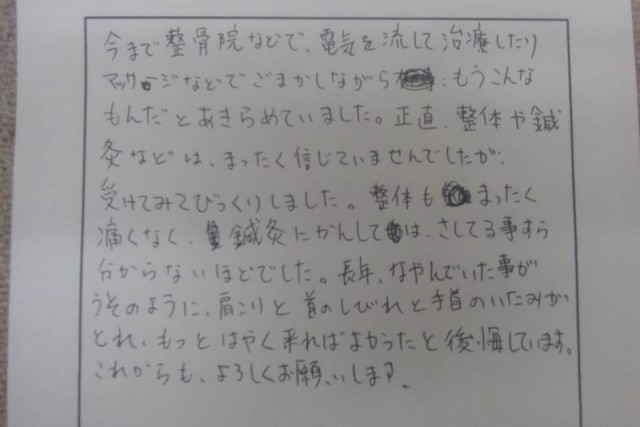 今まで整骨院などで、電気を流して治療したり
マッサージなどでごまかしながら…もうこんな
もんだとあきらめていました。正直、整体や鍼
灸などは、まったく信じていませんでしたが、
受けてみてびっくりしました。整体もまったく
痛くなく、鍼灸にかんしては、さしてる事すら
分からないほどでした。長年、なやんでいた事が
うそのように、肩こりと首のしびれと手首のいたみが
とれ、もっとはやく来ればよかったと後悔しています。
これからも、よろしくお願いします。